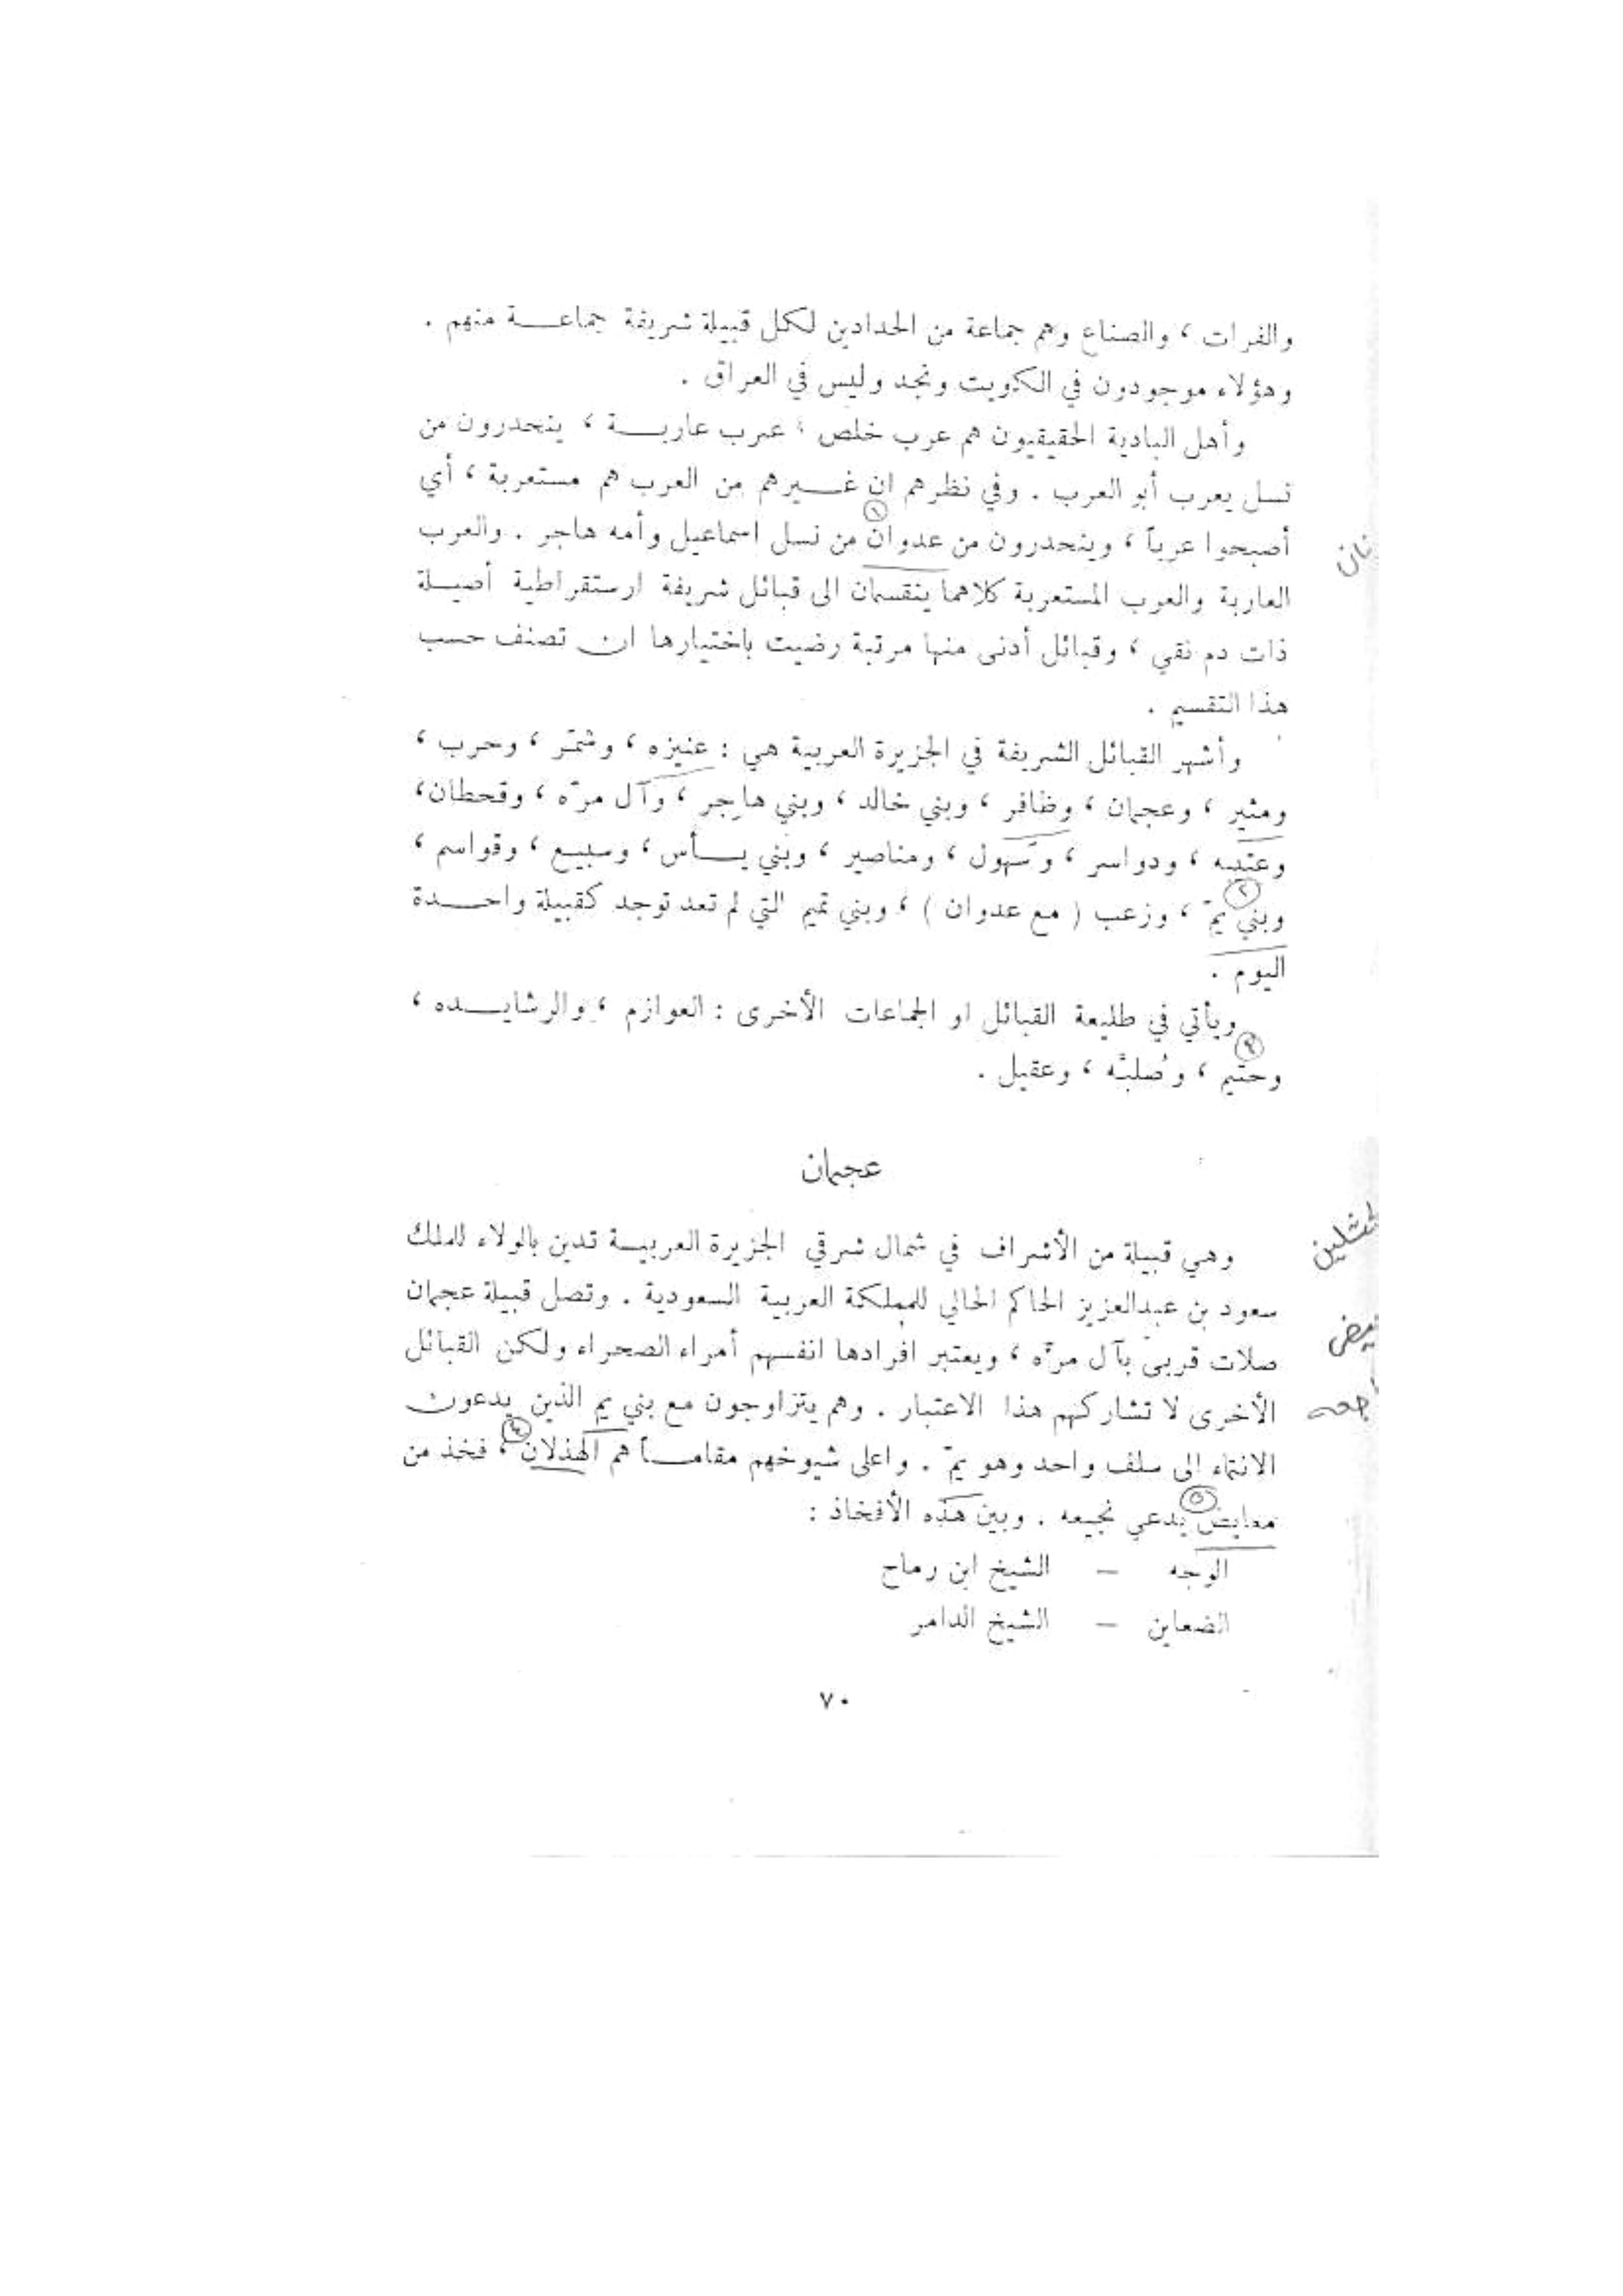 والفرات ، والصناع وهم جماعة من الحدادين لكل قبيلة شريفة جماعـــة منهم .
وهؤلاء موجودون في الكويت ونجد وليس في العراق .
وأهل البادية الحقيقيون هم عرب خلص ، عرب عاربـــة ، ينحدرون من
نسل يعرب أبو العرب . وفي نظرهم ان غـــيرهم من العرب هم مستعربة ، أي
أصبحوا عرباً ، وينحدرون من عدوان من نسل اسماعيل وأمه هاجر . والعرب
العاربة والعرب المستعربة كلاهما ينقسمان الى قبائل شريفة ارستقراطية أصيـــلة
ذات دم نقي ، وقبائل أدنى منها مرتبة رضيت باختيارها ان تصنف حسب
هذا التقسيم .
وأشهر القبائل الشريفة في الجزيرة العربية هي : عنيزه ، وشمّر ، وحرب ،
ومثير ، وعجمان ، وظافر ، وبني خالد ، وبني هاجر ، وآل مرّه ، وقحطان ،
وعتيبه ، ودواسر ، وسهول ، ومناصير ، وبني يـــأس ، وسبيع ، وقواسم ،
وبني يمّ ، وزعب ( مع عدوان ) ، وبني تميم التي لم تعد توجد كقبيلة واحـــدة
اليوم .
ويأتي في طليعة القبائل او الجماعات الأخرى : العوازم ، والرشايـــده ،
وحتيم ، وصُلبَّه ، وعقيل .
عجمان
وهي قبيلة من الأشراف في شمال شرقي الجزيرة العربيـــة تدين بالولاء للملك
سعود بن عبدالعزيز الحاكم الحالي للمملكة العربية السعودية . وتصل قبيلة عجمان
صلات قربى بآل مرّه ، ويعتبر افرادها انفسهم أمراء الصحراء ولكن القبائل
الأخرى لا تشاركهم هذا الاعتبار . وهم يتزاوجون مع بني يم الذين يدعون
الانتماء إلى سلف واحد وهو يمّ . واعلى شيوخهم مقامـــاً هم الهذلان ، فخذ من
معايض يدعي نجيعه . وبين هذه الأفخاذ :
الوجه — الشيخ ابن رماح
الضعاين — الشيخ الدامر
٧٠